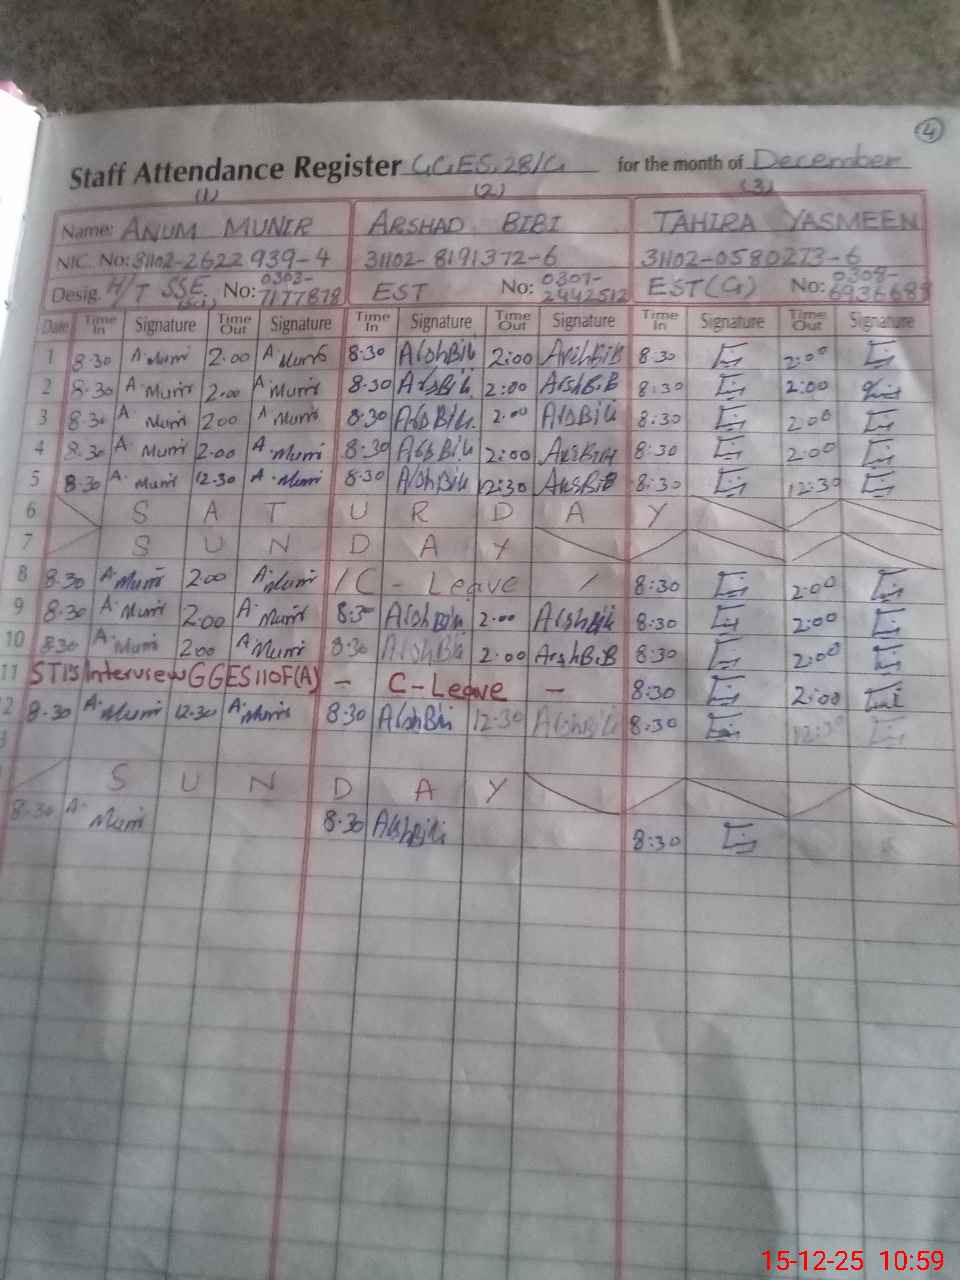 4
Staff Attendance Register GGES.28/G for the month of December
(1) (2) (3)
Name: ANUM MUNIR ARSHAD BIBI TAHIRA YASMEEN
NIC. No: 31102-2622939-4 31102-8191372-6 31102-0580273-6
Desig. H/T SSE (Sci) No: 0303-7177878 EST No: 0307-2442512 EST(G) No:
Date Time In Signature Time Out Signature Time In Signature Time Out Signature Time In Signature Time Out Signature
1 8:30 A Munir 2:00 A Munir 8:30 ArshBib 2:00 ArshBiB 8:30 2:00
2 8:30 A Munir 2:00 A Munir 8:30 ArshBib 2:00 ArshBiB 8:30 2:00
3 8:30 A Munir 2:00 A Munir 8:30 ArshBib 2:00 ArshBib 8:30 2:00
4 8:30 A Munir 2:00 A. Munir 8:30 ArshBib 2:00 ArshBib 8:30 2:00
5 8:30 A. Munir 12.30 A. Munir 8:30 ArshBib 12:30 ArshBiB 8:30 12:30
6 S A T U R D A Y
7 S U N D A Y
8 8.30 A. Munir 2:00 A. Munir / C - Leave / 8:30 2:00
9 8:30 A. Munir 2:00 A. Munir 8:30 ArshBib 2:00 ArshBib 8:30 2:00
10 8:30 A. Munir 2:00 A. Munir 8:30 ArshBib 2:00 ArshBiB 8:30 2:00
11 STI'S Interview GGES 110F(A) - C-Leave - 8:30 2:00
12 8.30 A. Munir 12.30 A. Munir 8:30 ArshBib 12:30 ArshBib 8:30 12:30
3
S U N D A Y
8.30 A. Munir 8.30 ArshBib 8:30
15-12-25 10:59